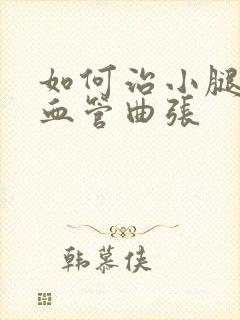 如何治小腿
血管曲張
韩慕侠